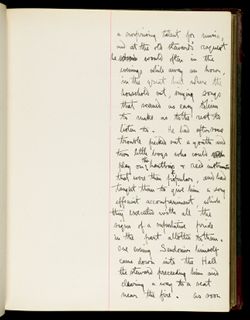 a surprising talent for music,
and at the old steward's request
he would often in the
evenings while away an hour,
in the great hall where the
household sat, singing songs
that seemed as easy to him
to make as to the rest to
listen to. He had afterwards
trouble picked out a youth and
two little boys who could
play on the hautboy or reed
that were then popular, and had
taught them to give him a song
efficient accompaniment, which
they executed with all the
signs of a superlative pride
in the part allotted to them.
one evening Sandonim himself
came down into the Hall
the steward preceding him and
clearing a way to a seat
near the fire. As soon